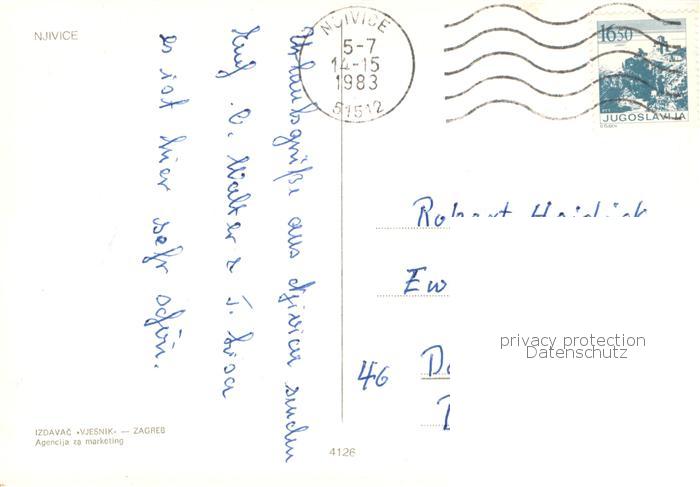 NJIVICE
NJIVICE
5-7
14-15
1983
51512
1650
JUGOSLAVIJA
Urlaubsgrüße aus Njivice senden
Euch O. Walter & T. Lisa
es ist hier sehr schön.
Robert
Ew
46 D
privacy protection
Datenschutz
IZDAVAČ «VJESNIK» — ZAGREB
Agencija za marketing
4126